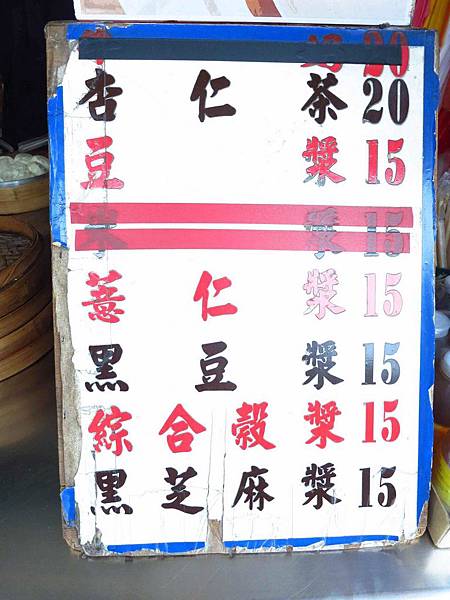 牛 奶 20
杏仁茶 20
豆漿 15
米漿 15
薏仁漿 15
黑豆漿 15
綜合穀漿 15
黑芝麻漿 15